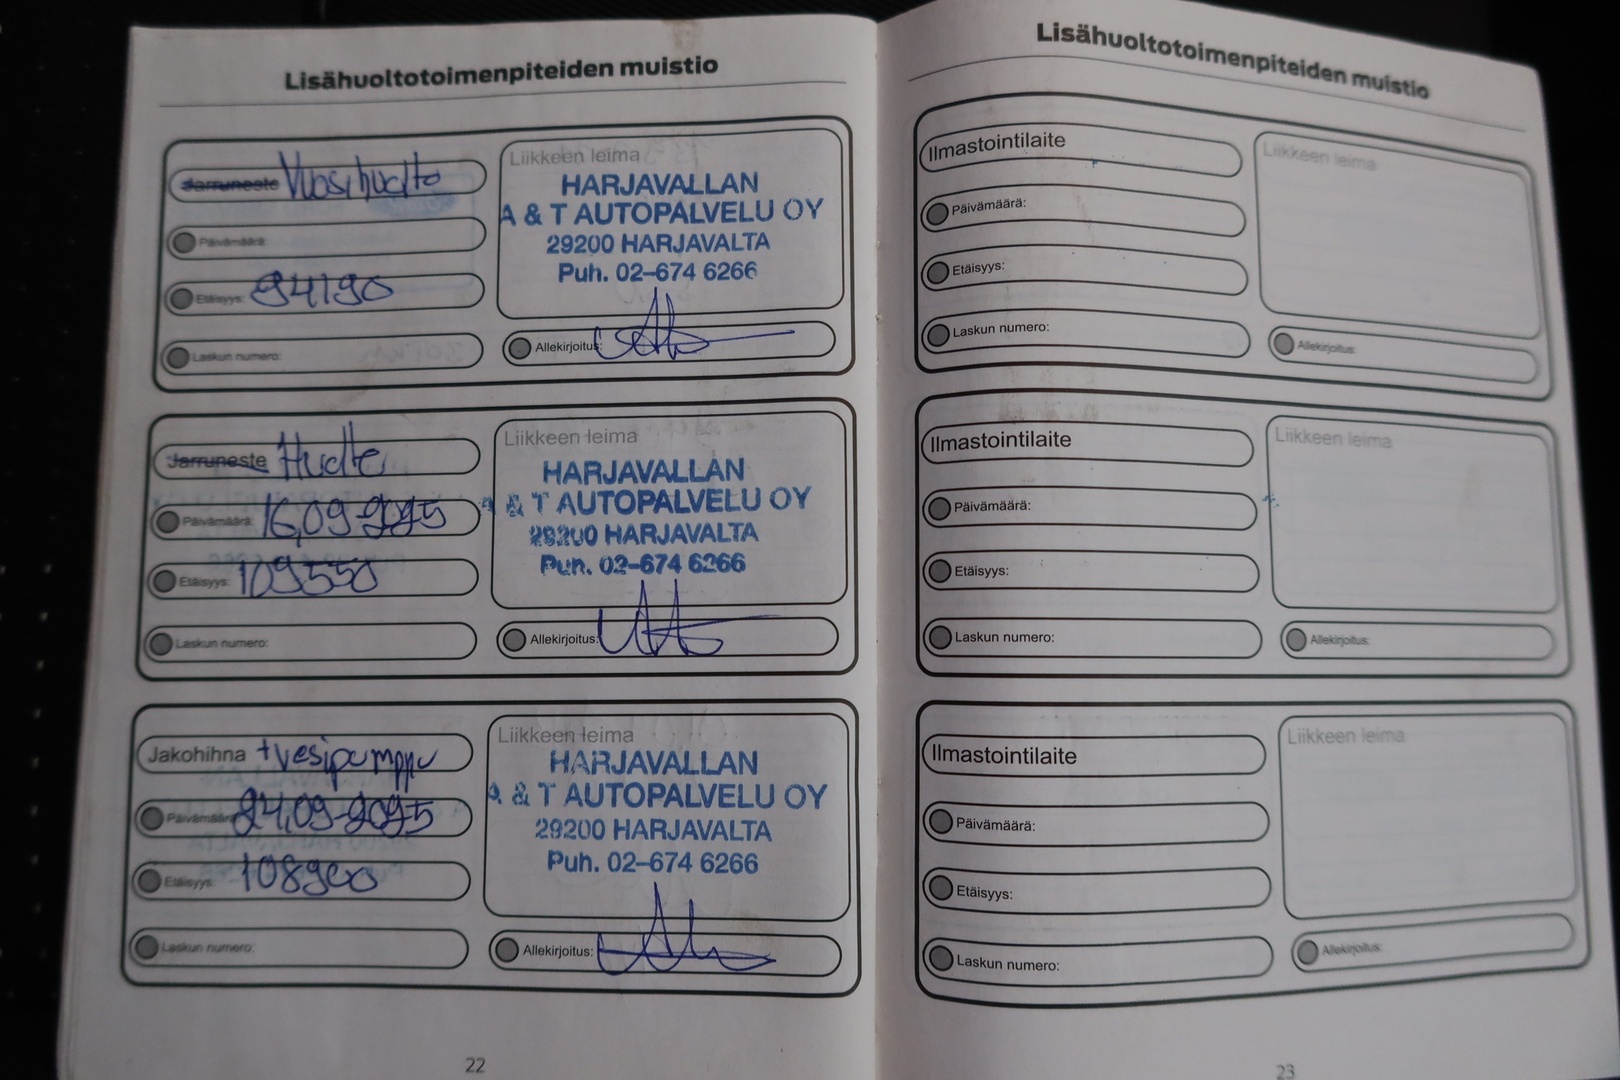 Lisähuoltotoimenpiteiden muistio
Jarruneste Vuosihuolto
Päivämäärä:
Etäisyys: 94190
Laskun numero:
Liikkeen leima
HARJAVALLAN
A & T AUTOPALVELU OY
29200 HARJAVALTA
Puh. 02-674 6266
Allekirjoitus:
Jarruneste Huolto
Päivämäärä: 16,09-2025
Etäisyys: 109550
Laskun numero:
Liikkeen leima
HARJAVALLAN
& T AUTOPALVELU OY
29200 HARJAVALTA
Puh. 02-674 6266
Allekirjoitus:
Jakohihna +vesipumppu
Päivämäärä: 24,09-2025
Etäisyys: 108900
Laskun numero:
Liikkeen leima
HARJAVALLAN
A & T AUTOPALVELU OY
29200 HARJAVALTA
Puh. 02-674 6266
Allekirjoitus:
22
Lisähuoltotoimenpiteiden muistio
Ilmastointilaite
Päivämäärä:
Etäisyys:
Laskun numero:
Liikkeen leima
Allekirjoitus:
Ilmastointilaite
Päivämäärä:
Etäisyys:
Laskun numero:
Liikkeen leima
Allekirjoitus:
Ilmastointilaite
Päivämäärä:
Etäisyys:
Laskun numero:
Liikkeen leima
Allekirjoitus:
23